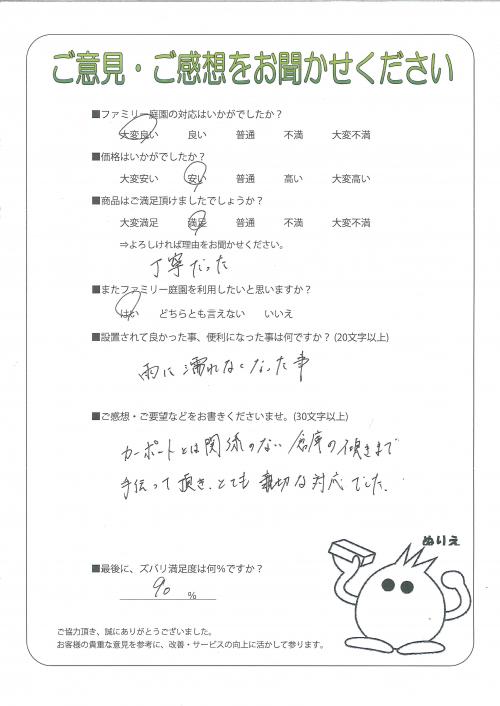 ご意見・ご感想をお聞かせください
■ファミリー庭園の対応はいかがでしたか？
大変良い 良い 普通 不満 大変不満
■価格はいかがでしたか？
大変安い 安い 普通 高い 大変高い
■商品はご満足頂けましたでしょうか？
大変満足 満足 普通 不満 大変不満
⇒よろしければ理由をお聞かせください。
丁寧だった
■またファミリー庭園を利用したいと思いますか？
はい どちらとも言えない いいえ
■設置されて良かった事、便利になった事は何ですか？(20文字以上)
雨に濡れなくなった事
■ご感想・ご要望などをお書きくださいませ。(30文字以上)
カーポートとは関係のない倉庫の傾きまで
手伝って頂き、とても親切な対応でした。
ぬりえ
■最後に、ズバリ満足度は何％ですか？
90 %
ご協力頂き、誠にありがとうございました。
お客様の貴重な意見を参考に、改善・サービスの向上に活かして参ります。